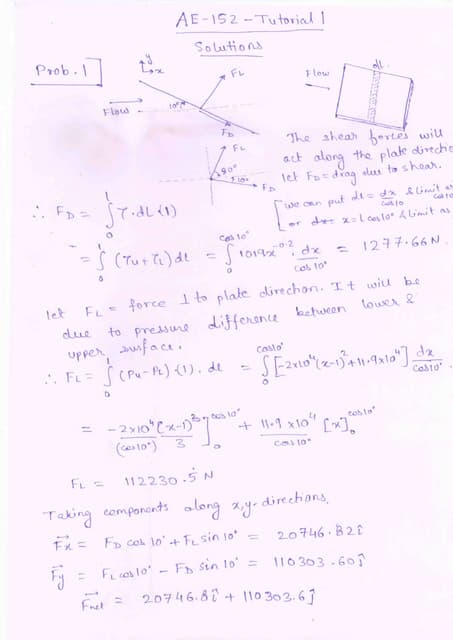 AE-152 - Tutorial 1
Solutions
Prob. 1
y
x
FL
Flow
10°
FD
Flow
dl
FL
90°
FD
The shear forces will
act along the plate directio
let FD = drag due to shear.
[we can put dl = dx/cos10 & limit as
or x = l cos10° & limit as
∴ FD = ∫₀¹ τ·dL(1)
= ∫₀¹ (τu + τL) dl = ∫₀^cos10° 1019x^-0.2 · dx/cos10° = 1277.66 N.
let FL = force ⊥ to plate direction. It will be
due to pressure difference between lower &
upper surface.
∴ FL = ∫₀¹ (Pu - PL)(1). dl = ∫₀^cos10° [-2x10⁴(x-1)² + 11.9x10⁴] dx/cos10°.
= -2x10⁴/(cos10°) [(x-1)³/3]₀^cos10° + 11.9 x10⁴/cos10° [x]₀^cos10°
FL = 112230.5 N
Taking components along x, y-directions,
Fx = FD cos10° + FL sin10° = 20746.82î
Fy = FL cos10° - FD sin10° = 110303.60ĵ
Fnet = 20746.8î + 110303.6ĵ